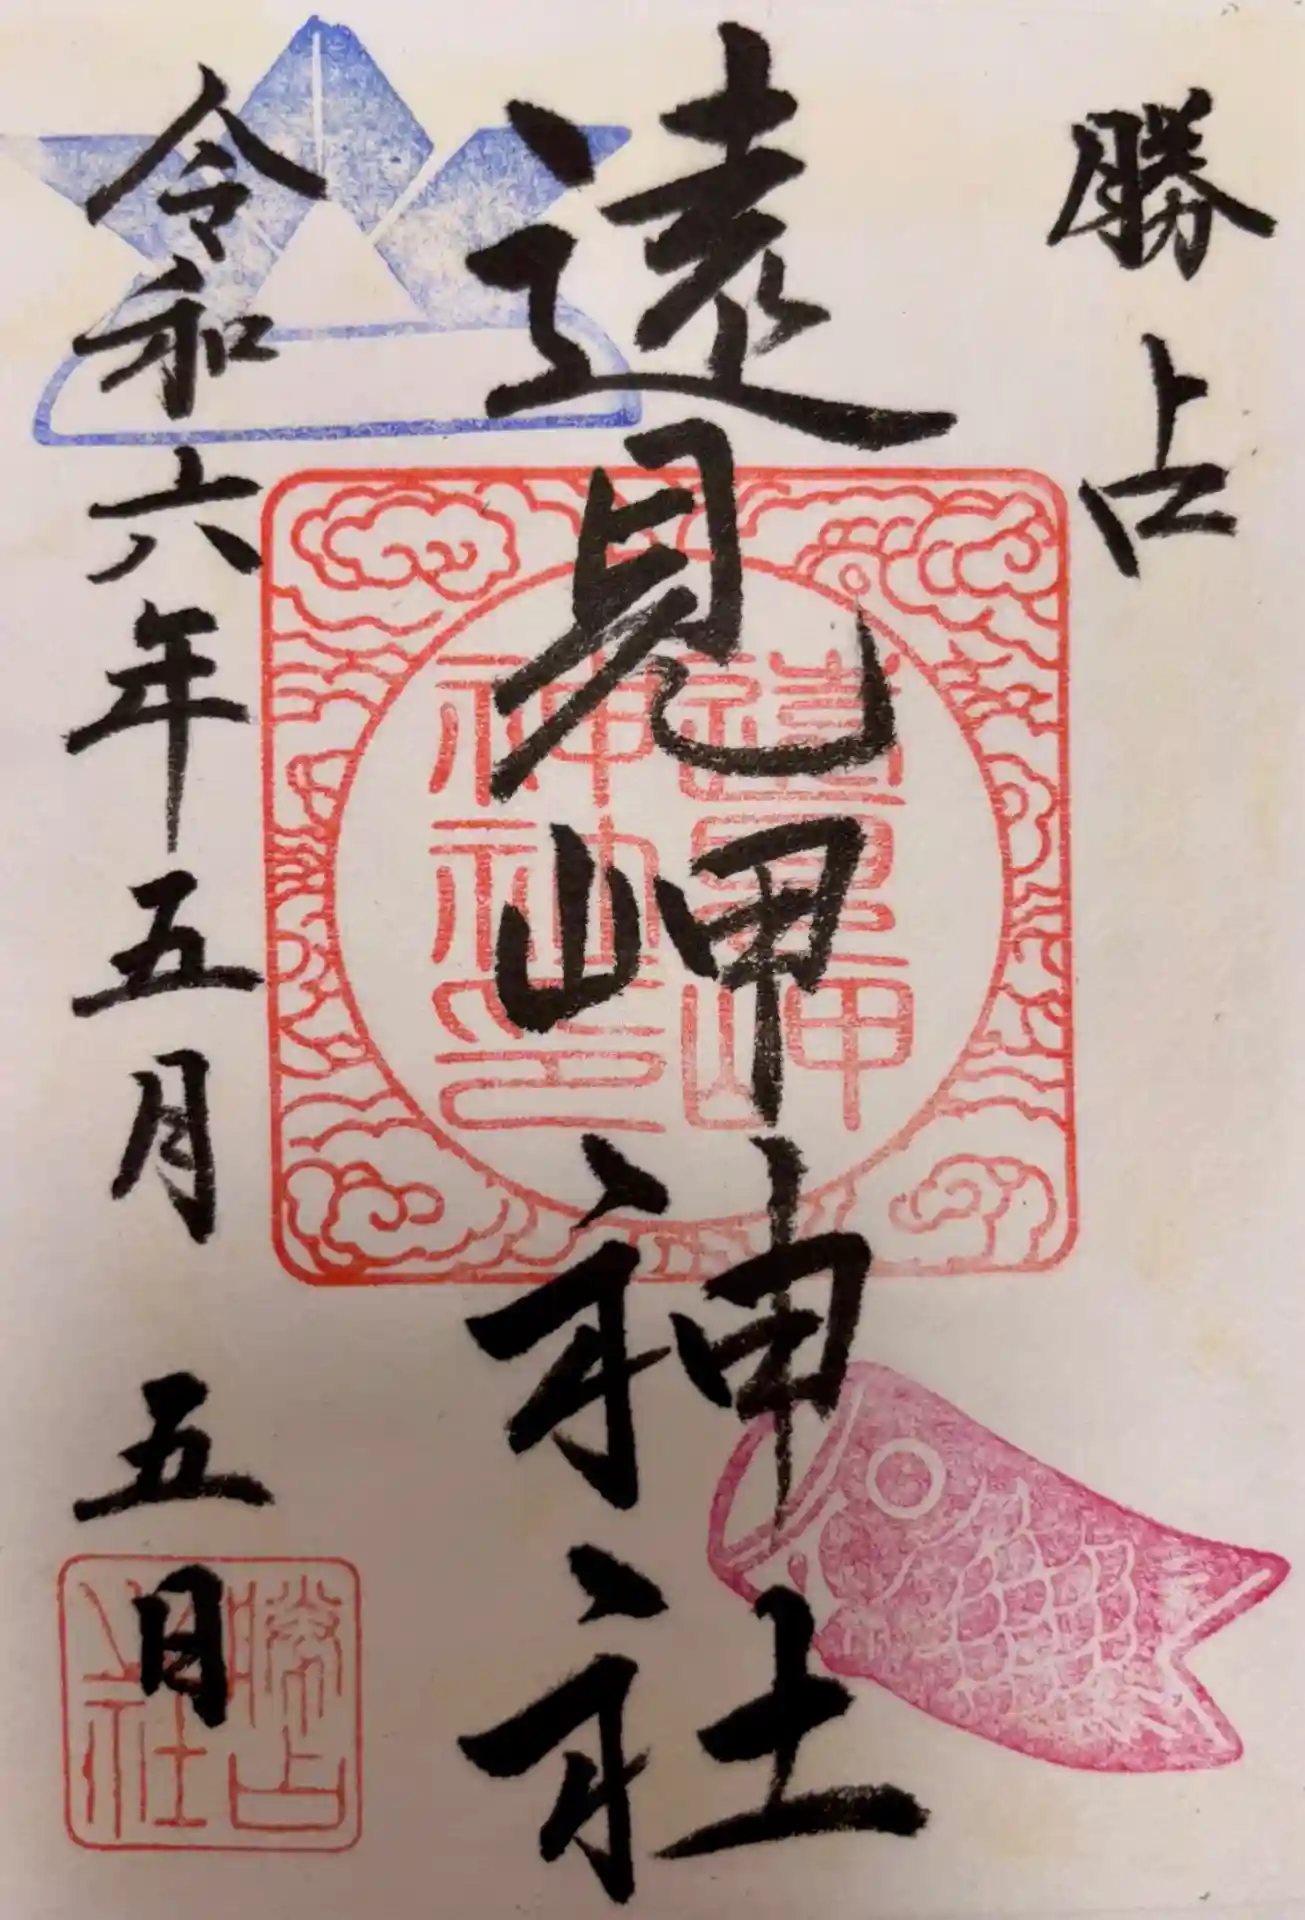 勝占
遠見岬神社
令和六年五月五日
遠見岬
神社印
勝占
之社